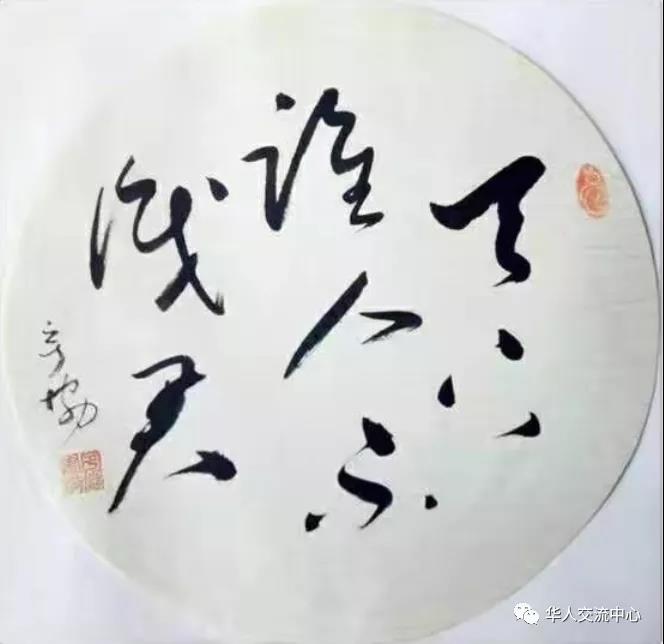 天下
谁人不
识君
华人交流中心